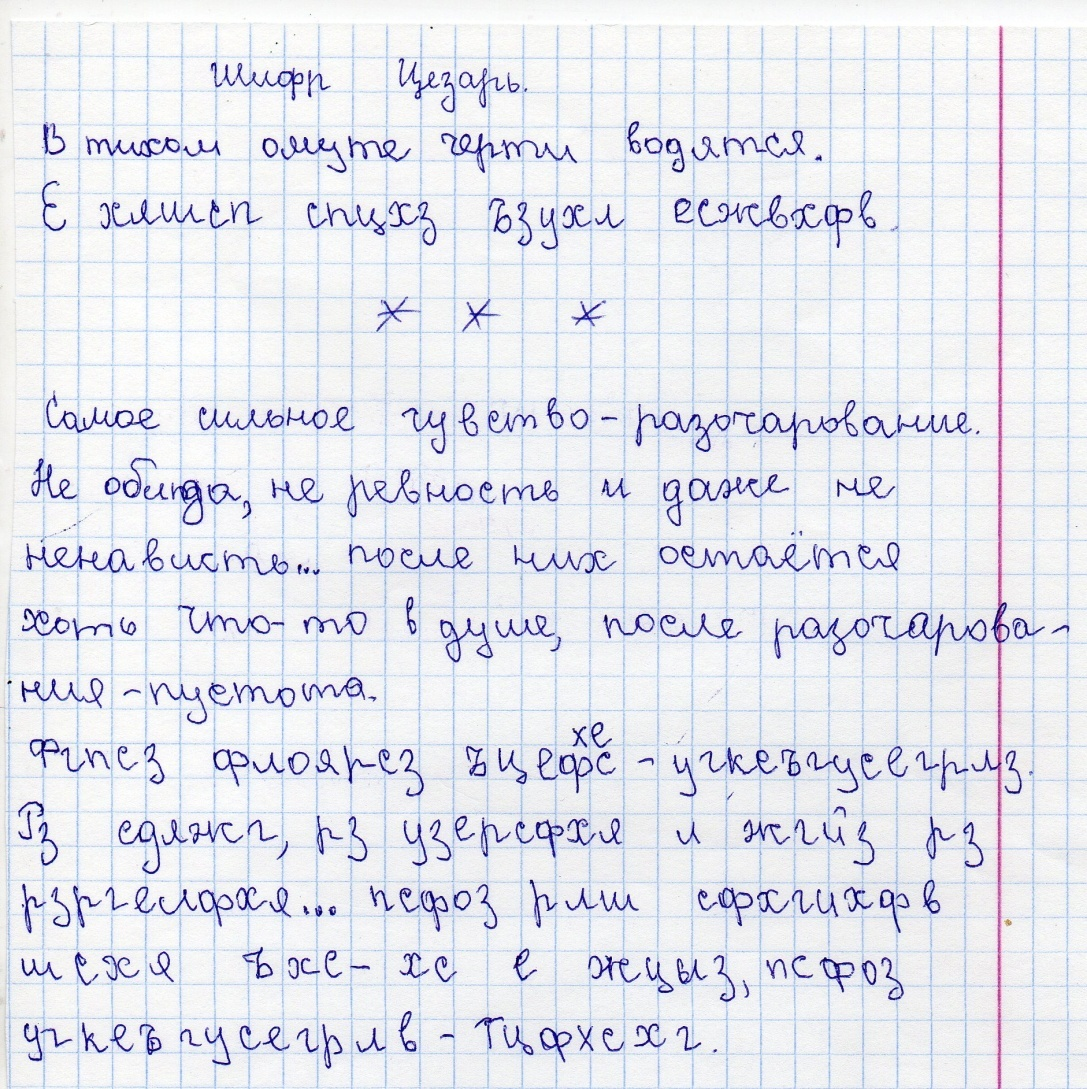 Шифр Цезарь.
В тихом омуте черти водятся.
Е хлшсп спцхз ъзухл есжвхфв.
* * *
Самое сильное чувство - разочарование.
Не обида, не ревность и даже не
ненависть... после них остаётся
хоть что-то в душе, после разочарова-
ния - пустота.
Фгпсз флоярсз ъцефс - угкеъгусегрлз.
хе
Рз сдяжг, рз узерсфхя л жгйз рз
рзргелфхя... псфоз рлш сфхгихфв
шсхя ъхс - хс е жцыз, псфоз
угкеъгусегрлв - Тцфхсхг.